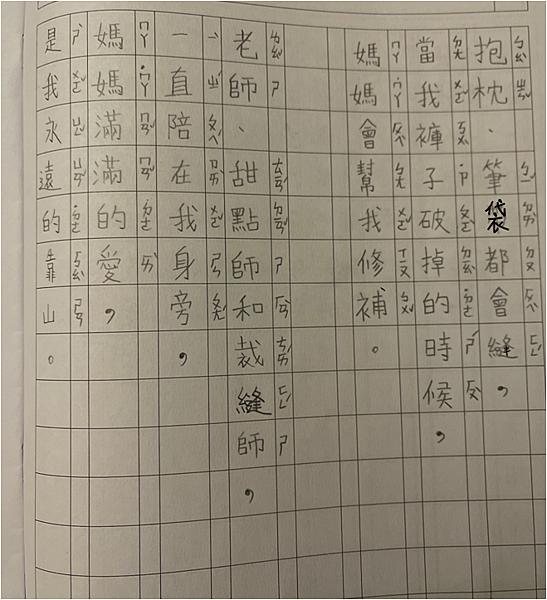 抱枕、筆袋都會縫，
當我褲子破掉的時候，
媽媽會幫我修補。
老師、甜點師和裁縫師，
一直陪在我身旁，
媽媽滿滿的愛，
是我永遠的靠山。